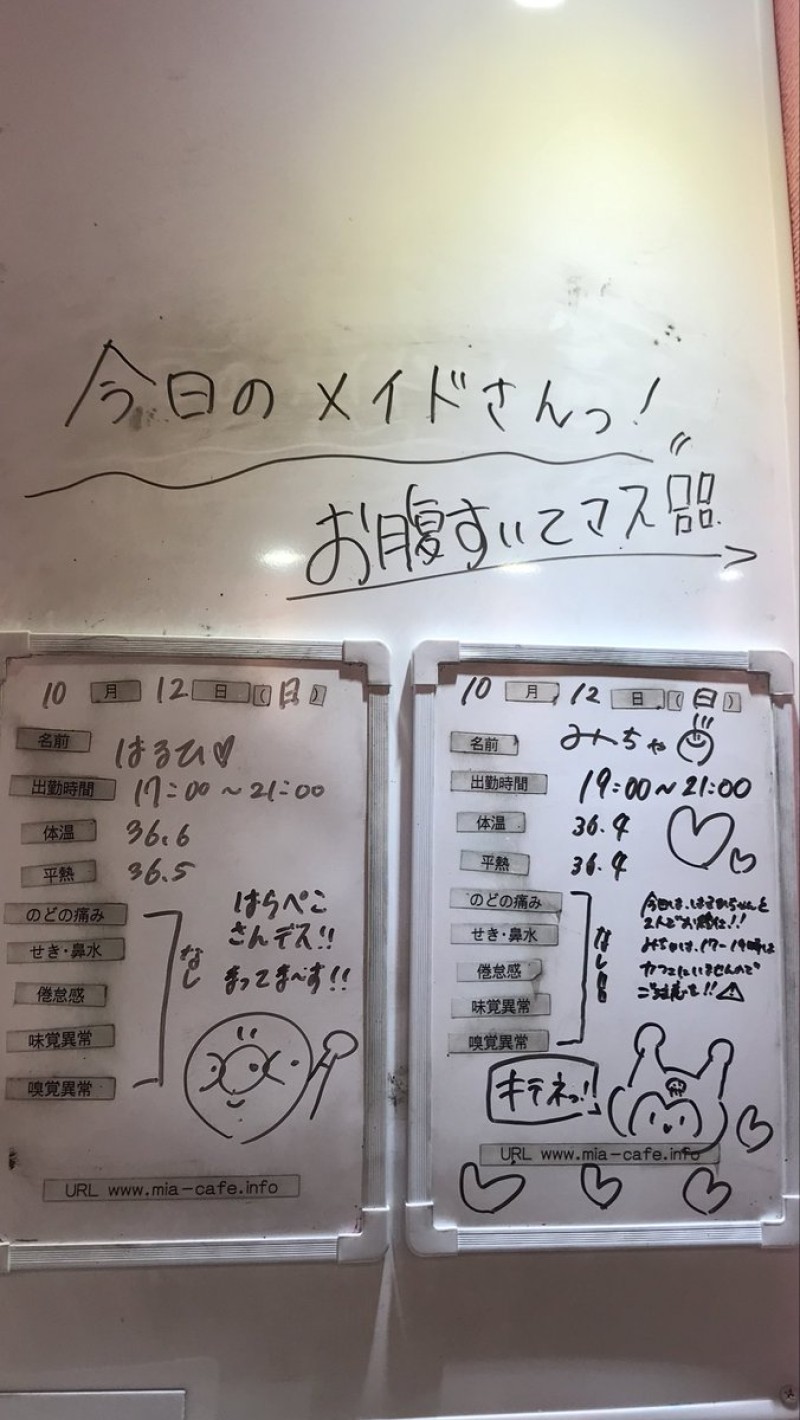 今日のメイドさんっ!
お腹すいてマス
10 月 12 日 ( 日 )
名前 はるひ♡
出勤時間 17:00～21:00
体温 36.6
平熱 36.5
のどの痛み
せき・鼻水
倦怠感
味覚異常
嗅覚異常
なし
はらぺこ
さんデス!!
まってま～す!!
URL www.mia-cafe.info
10 月 12 日 ( 日 )
名前 みちゃ
出勤時間 19:00～21:00
体温 36.4
平熱 36.4
のどの痛み
せき・鼻水
倦怠感
味覚異常
嗅覚異常
なし
今日は、はるひちゃんと
2人でお給仕!!
みちゃは、17-19時は
カフェにいませんので
ご注意を!!⚠
キテネっ!
URL www.mia-cafe.info